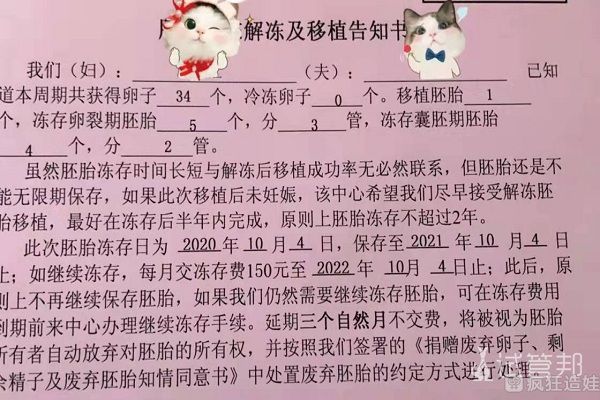 解冻及移植告知书
我们（妇）： （夫）： 已知
道本周期共获得卵子 34 个，冷冻卵子 0 个。移植胚胎 1
个，冻存卵裂期胚胎 5 个，分 3 管，冻存囊胚期胚胎
4 个，分 2 管。
虽然胚胎冻存时间长短与解冻后移植成功率无必然联系，但胚胎还是不
能无限期保存，如果此次移植后未妊娠，该中心希望我们尽早接受解冻胚
胎移植，最好在冻存后半年内完成，原则上胚胎冻存不超过2年。
此次胚胎冻存日为 2020 年 10 月 4 日，保存至 2021 年 10 月 4 日
止；如继续冻存，每月交冻存费150元至 2022 年 10月 4 日止；此后，原
则上不再继续保存胚胎，如果我们仍然需要继续冻存胚胎，可在冻存费用
到期前来中心办理继续冻存手续。延期三个自然月不交费，将被视为胚胎
所有者自动放弃对胚胎的所有权，并按照我们签署的《捐赠废弃卵子、剩
余精子及废弃胚胎知情同意书》中处置废弃胚胎的约定方式进行处理。
试管邦
疯狂造娃